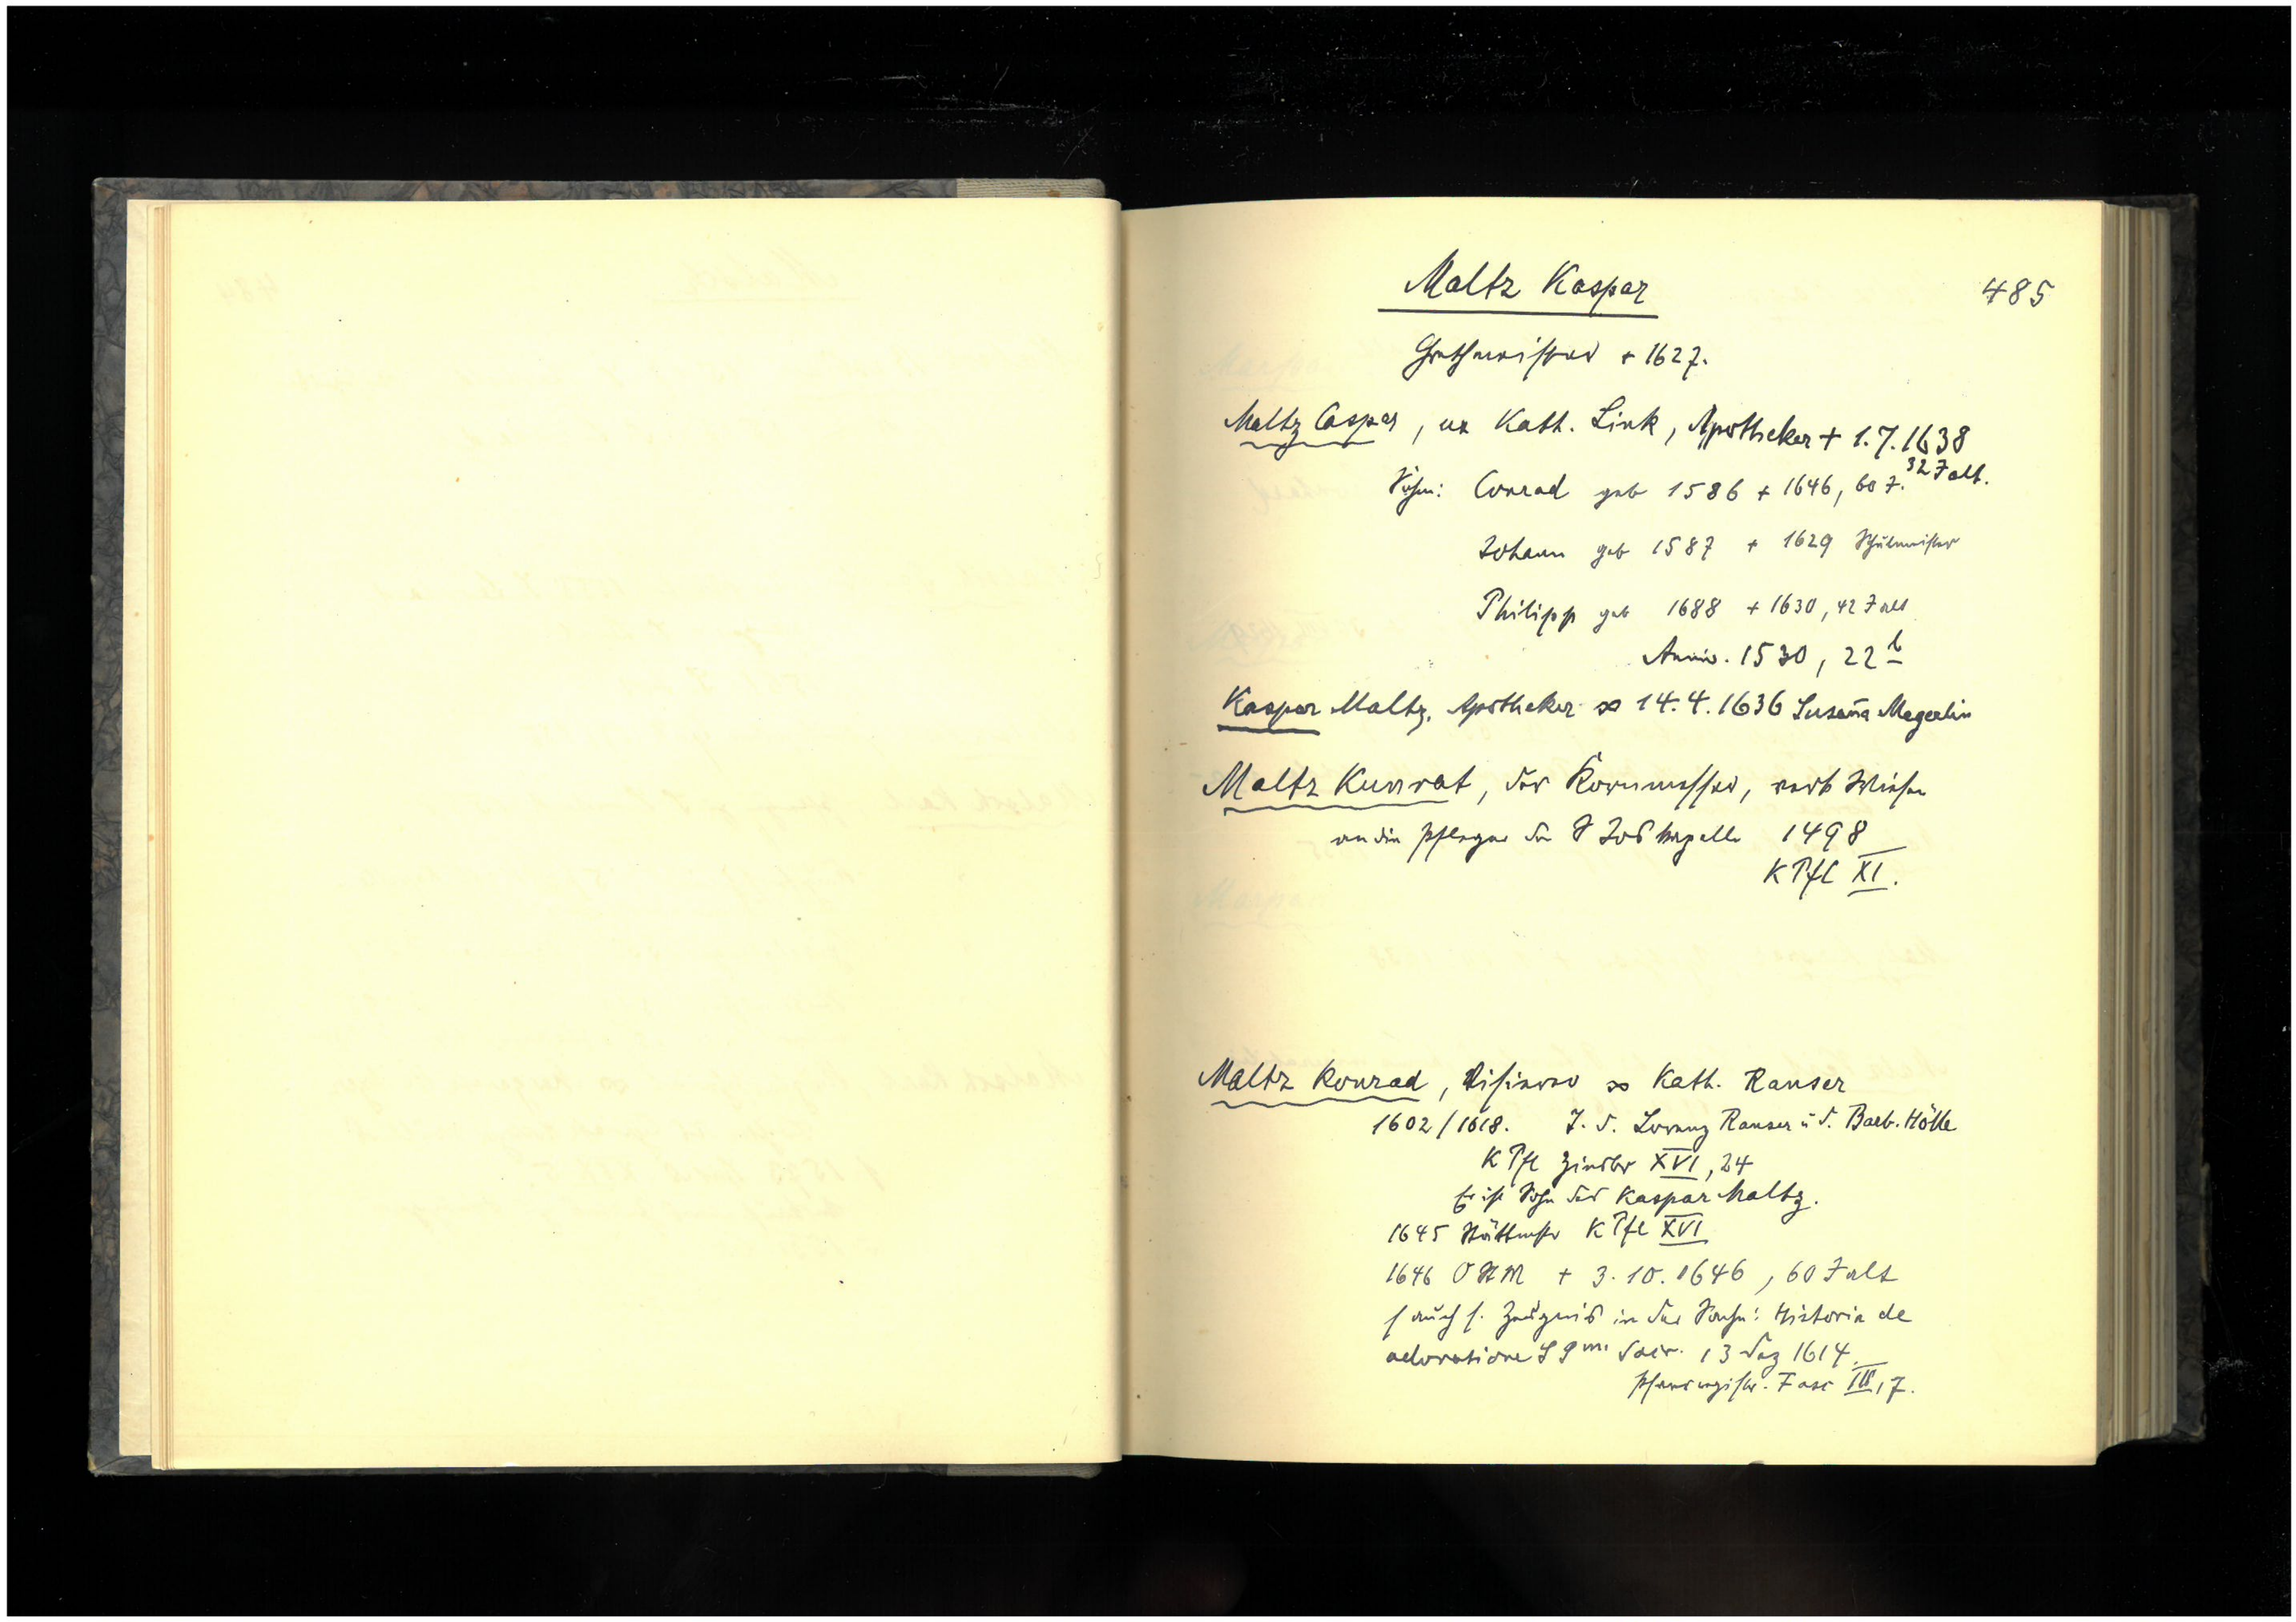 Maltz Kaspar
485
+ 1627.
Maltz Caspar, ux Kath. Link, Apotheker + 1.7.1638
32 J alt.
Söhne: Conrad geb 1586 + 1646, 60 J.
Johann geb 1587 + 1629 Schulmeister
Philipp geb 1688 + 1630, 42 J alt
Anniv. 1530, 22 b
Kaspar Maltz, Apotheker ∞ 14.4.1636 Susaña Megerlin
Maltz Kunrat, der Kornmesser, verk Wiese
an die Pfleger der Jos kapelle 1498
K Pfl XI.
Maltz Konrad, ∞ Kath. Ranser
1602/1618. T. d. Lorenz Ranser u d. Barb. Hölle
K Pfl Zinsbr XVI, 24
Er ist Sohn des Kaspar Maltz.
1645 Stättmstr K Pfl XVI
1646 O St M + 3.10.1646, 60 J alt
s auch s. Zeugnis in der Sache: Historia de
adoratione 13 Dez 1614.
Pfarregistr. Fasc III, 7.